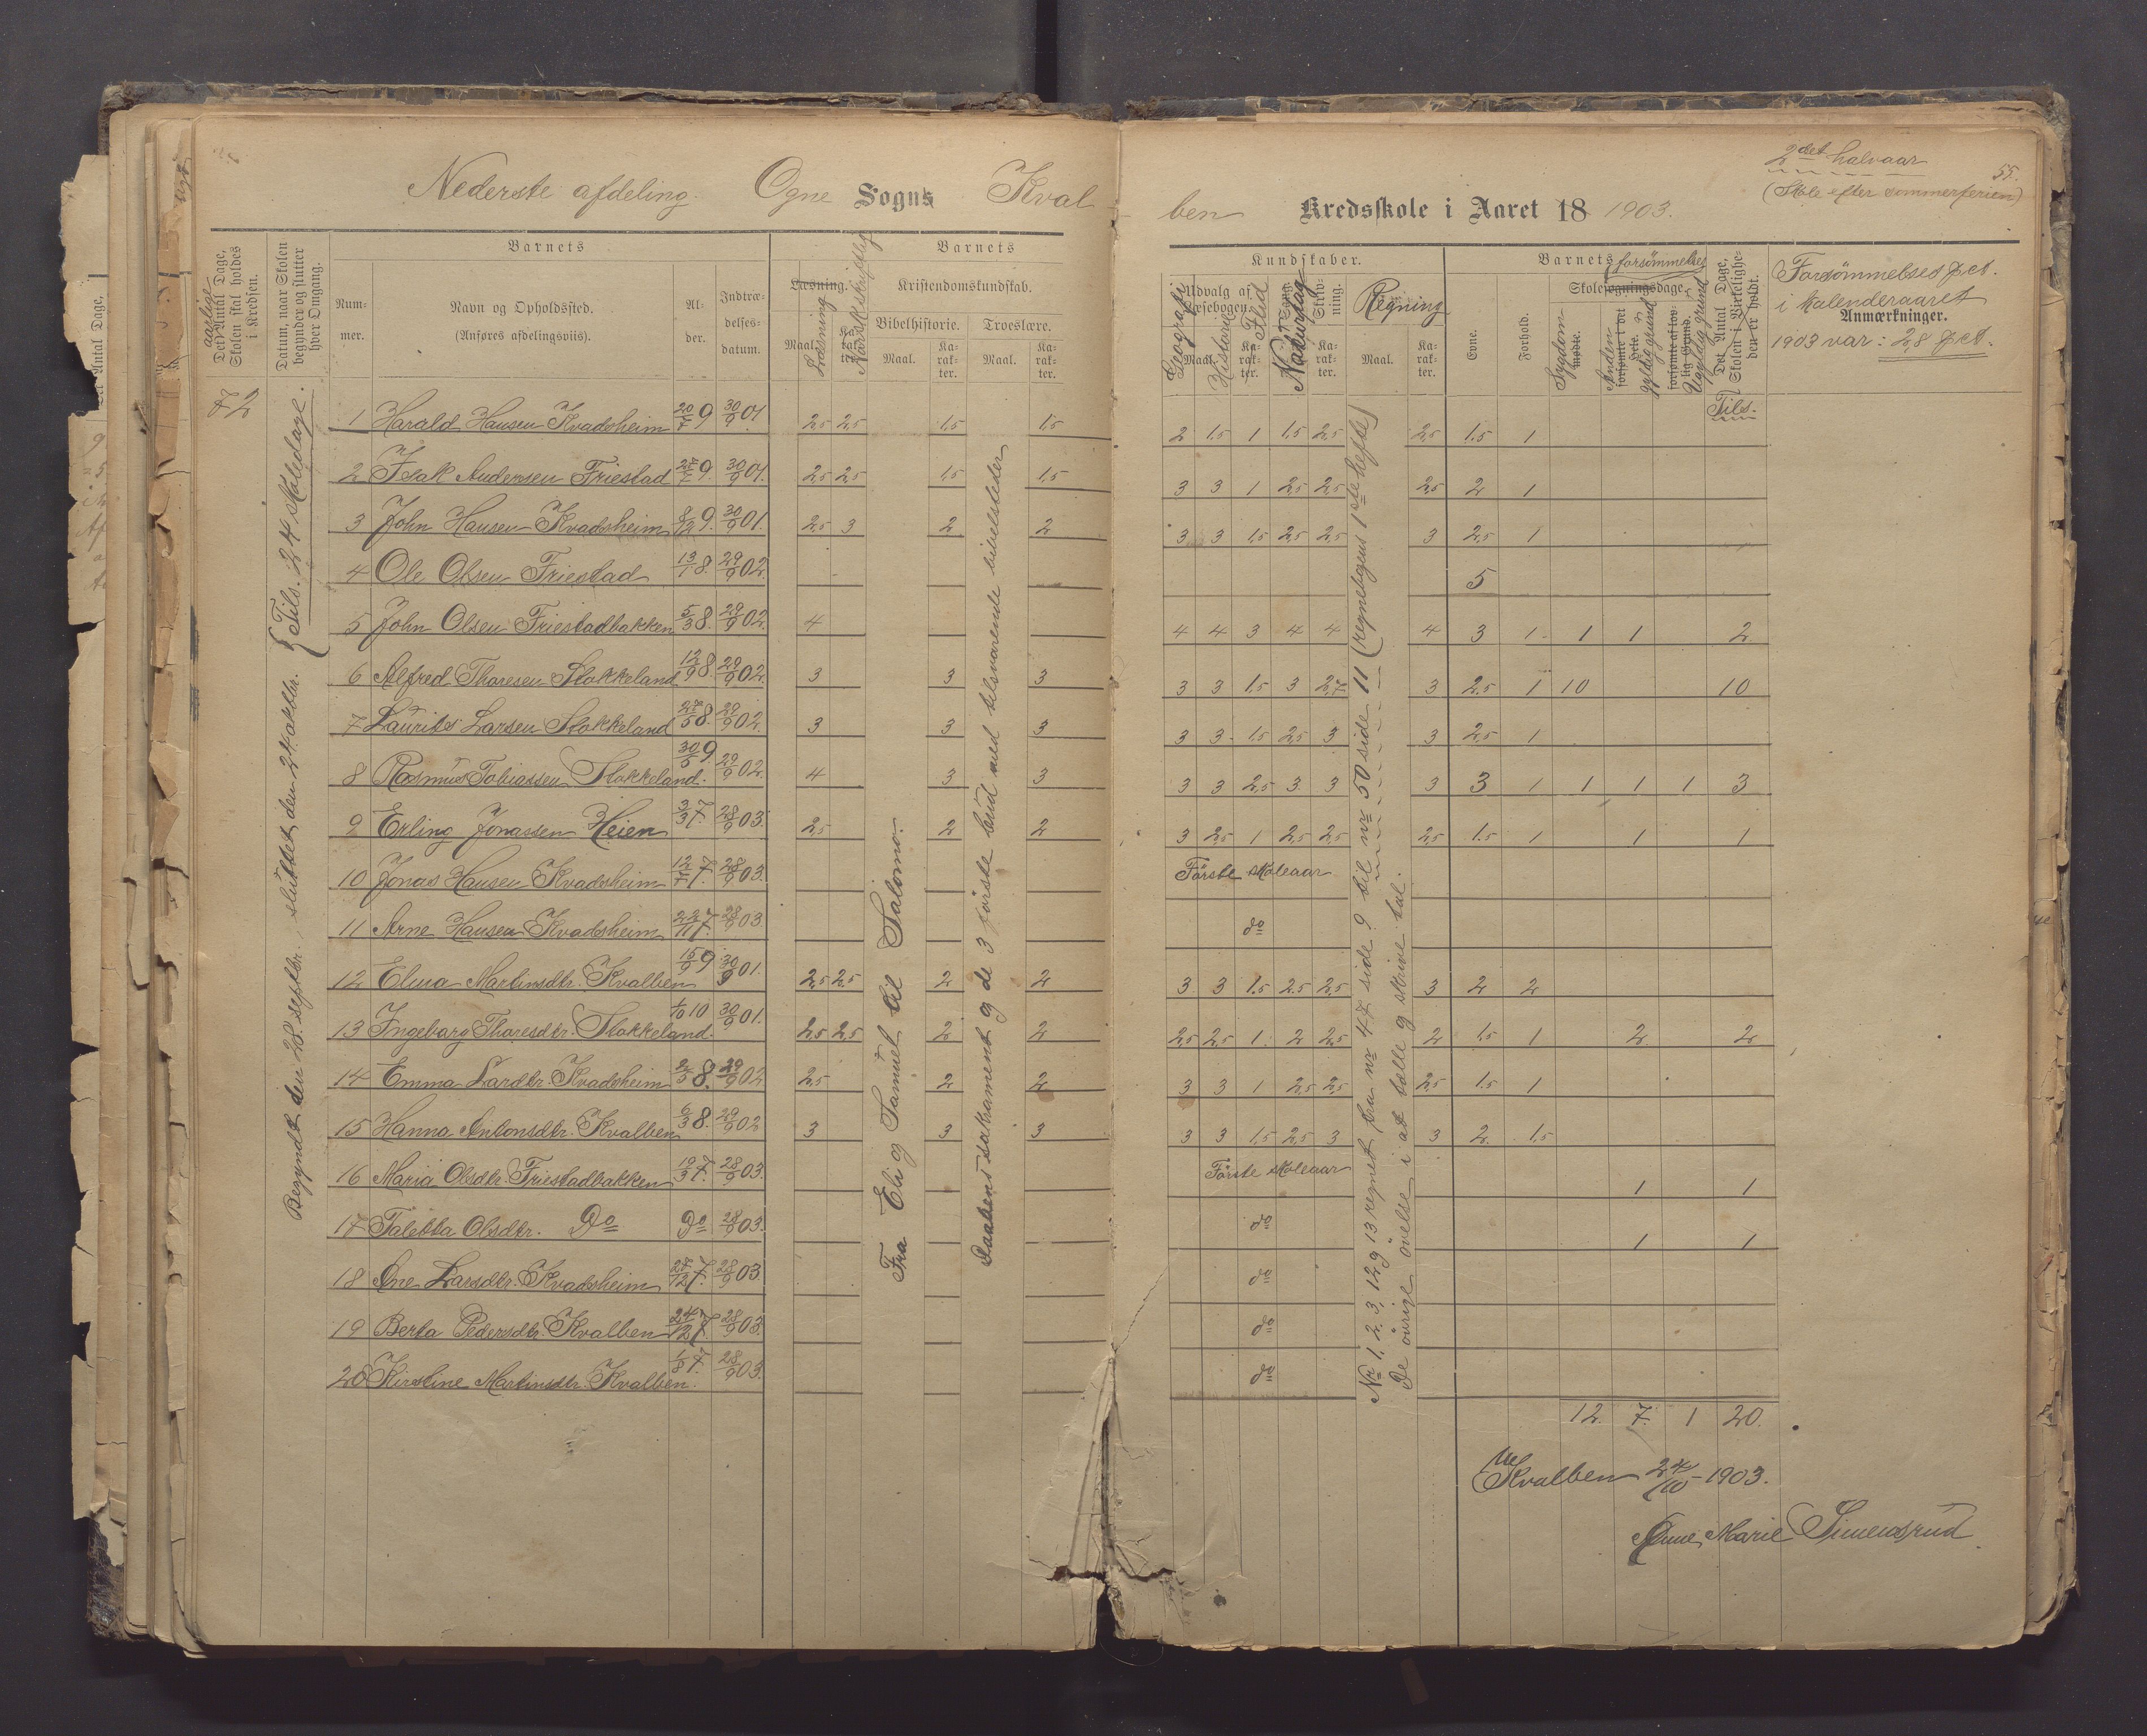 2det halvaar
55.
(Skole efter sommerferien)
Nederste afdeling. Ogne Sogns Kval-
ben Kredsskole i Aaret 18 1903.
aarlige
Det Antal Dage, Skolen skal holdes i Kredsen.
Datum, naar Skolen begynder og slutter hver Omgang.
Barnets
Nummer.
Navn og Opholdssted.
(Anføres afdelingsviis).
Alder.
Indtrædelsesdatum.
Barnets
Læsning.
Maal. Læsning
Karakter. Norsk skriftlig
Kristendomskundskab.
Bibelhistorie.
Maal.
Karakter.
Troeslære.
Maal.
Karakter.
Kundskaber.
Udvalg af Læsebogen.
Maal.
Geografi
Historie
Karakter.
Flid
Sang.
Naturfag
Skrivning.
Karakter.
Regning
Maal.
Karakter.
Evne.
Forhold.
Barnets forsømmelse
Skolesøgningsdage.
mødte.
Sygdom
forsømte i det Hele.
Anden gyldig grund
forsømte af lovlig Grund.
Ugyldig grund
Det Antal Dage, Skolen i Virkeligheden er holdt.
Tils.
Forsømmelsespct.
i kalenderaaret
Anmærkninger.
1903 var: 2,8 pct.
72
Begyndt den 28. septbr., sluttet den 24 oktbr. {Tils. 24 skoledage.
1 Harald Hansen Kvadsheim 20/7 9 30/9 01 2,5 2,5 1,5 1,5 2 1,5 1 1,5 2,5 2,5 1,5 1
2 Isak Andersen Friestad 9. 30/9 01. 2,5 2,5 1,5 1,5 3 3 1 2,5 2,5 2,5 2 1
3 John Hansen Kvadsheim 8/12 9. 30/9 01. 2,5 3 2 2 3 3 1,5 2,5 2,5 3 2,5 1
4 Ole Olsen Friestad 13/1 8. 29/9 02. 5
5 John Olsen Friestadbakken 5/3 8. 29/9 02. 4 4 4 3 4 4 4 3 1 1 1 2
6 Alfred Thoresen Stokkeland 12/9 8. 29/9 02. 3 3 3 3 3 1,5 3 2,5 3 2,5 1 10 10
7 Laurits Larsen Stokkeland 8. 29/9 02. 3 3 3 3 3 1,5 2,5 3 3 2,5 1
8 Rasmus Tobiassen Stokkeland. 30/5 9 29/9 02. 4 3 3 3 3 2,5 3 3 3 3 1 1 1 1 3
9 Erling Jonassen Heien 3/3 7. 28/9 03. 2,5 2 2 3 2,5 1 2,5 2,5 2,5 1,5 1 1 1
10 Jonas Hansen Kvadsheim 12/7 7. 28/9 03. Förste skoleaar
11 Arne Hansen Kvadsheim 22/11 7. 28/9 03. do
12 Elina Martinsdtr. Kvalben 15/9 9 30/9 01. 2,5 2,5 2 2 3 3 1,5 2,5 2,5 3 2 2
13 Ingeborg Thoresdtr. Stokkeland. 1/10 10 30/9 01. 2,5 2,5 2 2 2,5 2,5 1 2 2,5 2 1,5 1 2 2
14 Emma Larsdtr. Kvadsheim 2/5 8. 29/9 02 2,5 2 2 3 3 1 2,5 2,5 2,5 1,5 1
15 Hanna Antonsdtr. Kvalben 6/3 8. 29/9 02 3 3 3 3 3 1,5 2,5 3 3 2 1,5
16 Maria Olsdtr. Friestadbakken 19/3 7. 28/9 03. Förste skoleaar 1 1
17 Taletta Olsdtr. Do Do 28/9 03. do 1 1
18 Ane Larsdtr. Kvadsheim 7. 28/9 03. do
19 Berta Pedersdtr. Kvalben 24/12 7. 28/9 03. do
20 Kirstine Martinsdtr. Kvalben. 1/8 7. 28/9 03. do
Fra Eli og Samuel til Salomo.
Daabens sakrament og de 3 förste bud med tilsvarende bibelsteder
Nr 1, 2, 3, 12 og 13 regnet fra nr 47 side 9 til nr 50 side 11 (regnebogens 1ste hefte)
De övrige övelse i at tælle og skrive tal.
12. 7. 1 20.
Kvalben 24/10 - 1903.
Anne Marie Simensrud